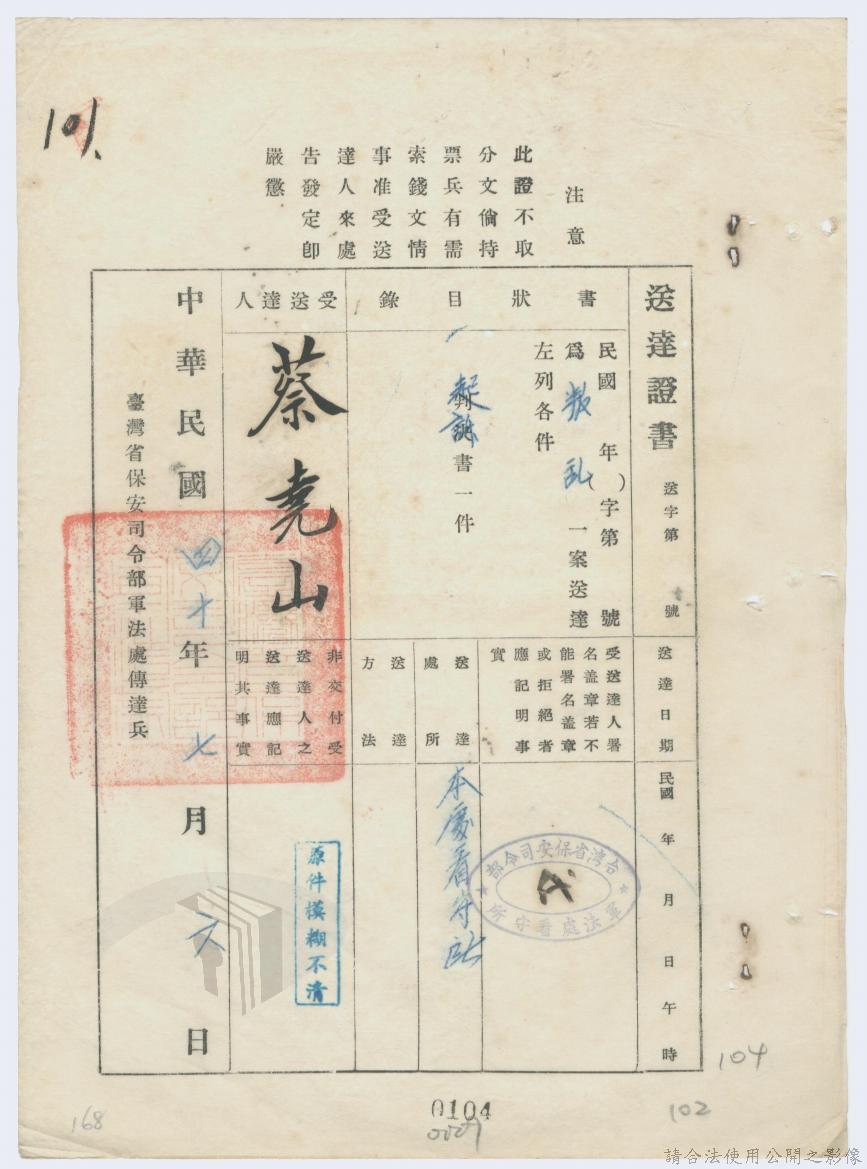 101、
注意
此證不取
分文倘持
票兵有需
索錢文情
事准受送
達人來處
告發定卽
嚴懲
送達證書 送字第 號
書狀目錄
民國 年( )字第 號
爲叛亂一案送達
左列各件
起訴書一件
受送達人
蔡堯山
送達日期
民國 年 月 日 午 時
受送達人署
名盖章若不
能署名盖章
或拒絕者
應記明事
實
台湾省保安司令部
軍法處看守所
送達處所
本處看守所
送達方法
非交付受
送達人之
送達應記
明其事實
原件模糊不清
中華民國四十年七月六日
臺灣省保安司令部軍法處傳達兵
104
0104
102
168
請合法使用公開之影像